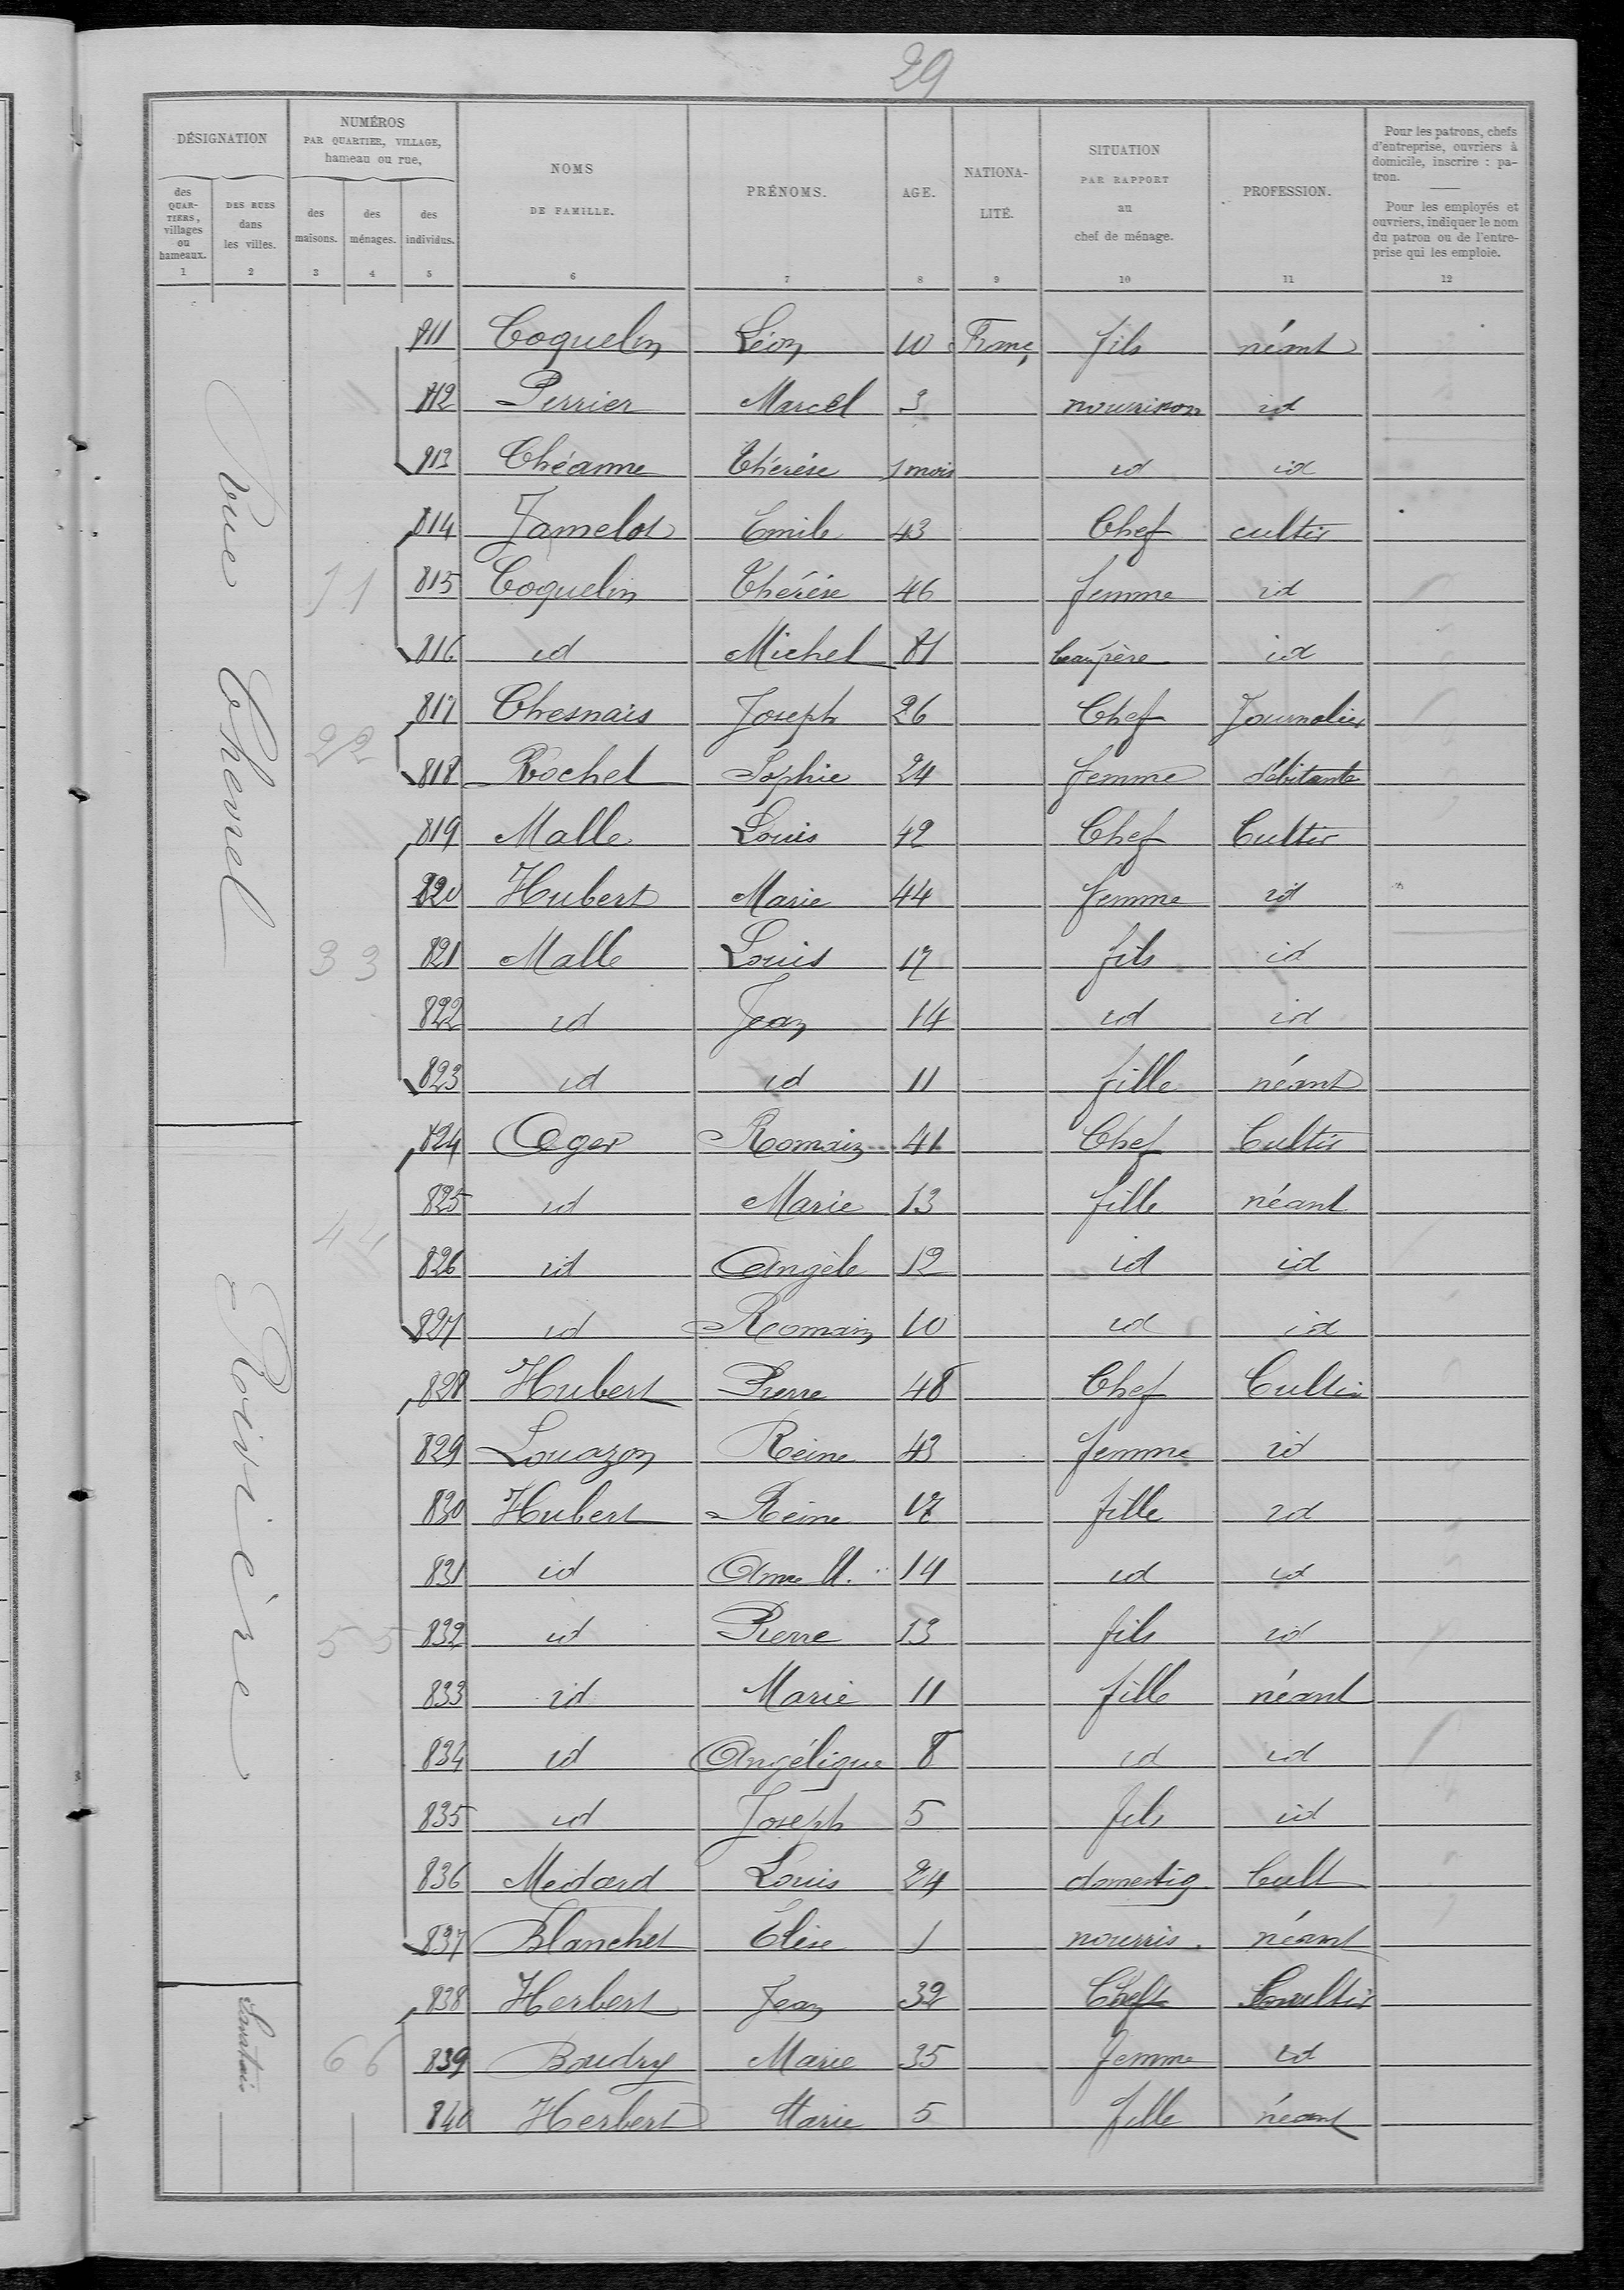 29
DÉSIGNATION
NUMÉROS
PAR QUARTIER, VILLAGE,
hameau ou rue,
NOMS
DE FAMILLE.
PRÉNOMS.
AGE.
NATIONA-
LITÉ.
SITUATION
PAR RAPPORT
au
chef de ménage.
PROFESSION.
Pour les patrons, chefs
d'entreprise, ouvriers à
domicile, inscrire : pa-
tron.
Pour les employés et
ouvriers, indiquer le nom
du patron ou de l'entre-
prise qui les emploie.
des
QUAR-
TIERS,
villages
ou
hameaux.
DES RUES
dans
les villes.
des
maisons.
des
ménages.
des
individus.
1 2 3 4 5 6 7 8 9 10 11 12
811 Coquelin Léon 10 Franç fils néant
812 Perrier Marcel 3 nourrison id
813 Théanne Thérèse 1 mois id id
814 Jamelot Emile 43 Chef cultir
1 1 815 Coquelin Thérèse 46 femme id
816 id Michel 81 beaupère id
817 Chesnais Joseph 26 Chef Journalier
2 2 818 Rochel Sophie 24 femme débitante
819 Malle Louis 42 Chef Cultir
820 Hubert Marie 44 femme id
3 3 821 Malle Louis 17 fils id
822 id Jean 14 id id
823 id id 11 fille néant
824 Oger Romain 41 Chef Cultir
825 id Marie 13 fille néant
4 4 826 id Angèle 12 id id
827 id Romain 10 id id
828 Hubert Pierre 48 Chef Cultir
829 Louazon Reine 43 femme id
830 Hubert Reine 17 fille id
831 id Anne M. 14 id id
5 5 832 id Pierre 13 fils id
833 id Marie 11 fille néant
834 id Angélique 8 id id
835 id Joseph 5 fils id
836 Médard Louis 24 domestiq. Cult
837 Blanchet Elise 1 nourris. néant
838 Herbert Jean 32 Chef Cultir
6 6 839 Boudry Marie 35 femme id
840 Herbert Marie 5 fille néant